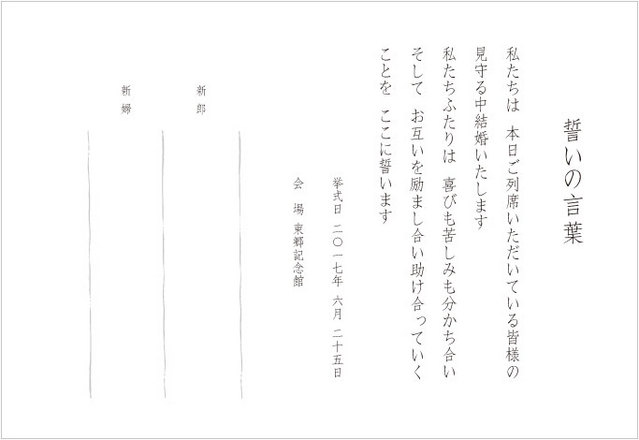 誓いの言葉
私たちは 本日ご列席いただいている皆様の
見守る中結婚いたします
私たちふたりは 喜びも苦しみも分かち合い
そして お互いを励まし合い助け合っていく
ことを ここに誓います
挙式日 二〇一七年 六月 二十五日
会 場 東郷記念館
新郎
新婦